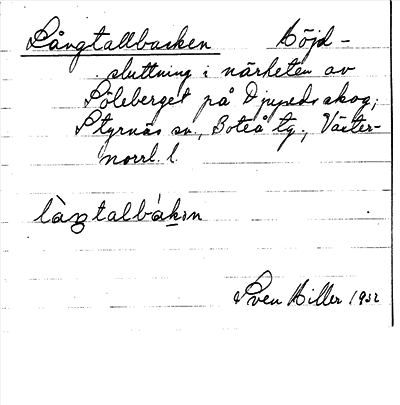 Långtallbacken Höjd-
sluttning i närheten av
Söleberget på Djupedsskog,
Styrnäs sn., Boteå tg., Väster-
norrl. l.
làŋtalbákən
Sven Hiller 1932